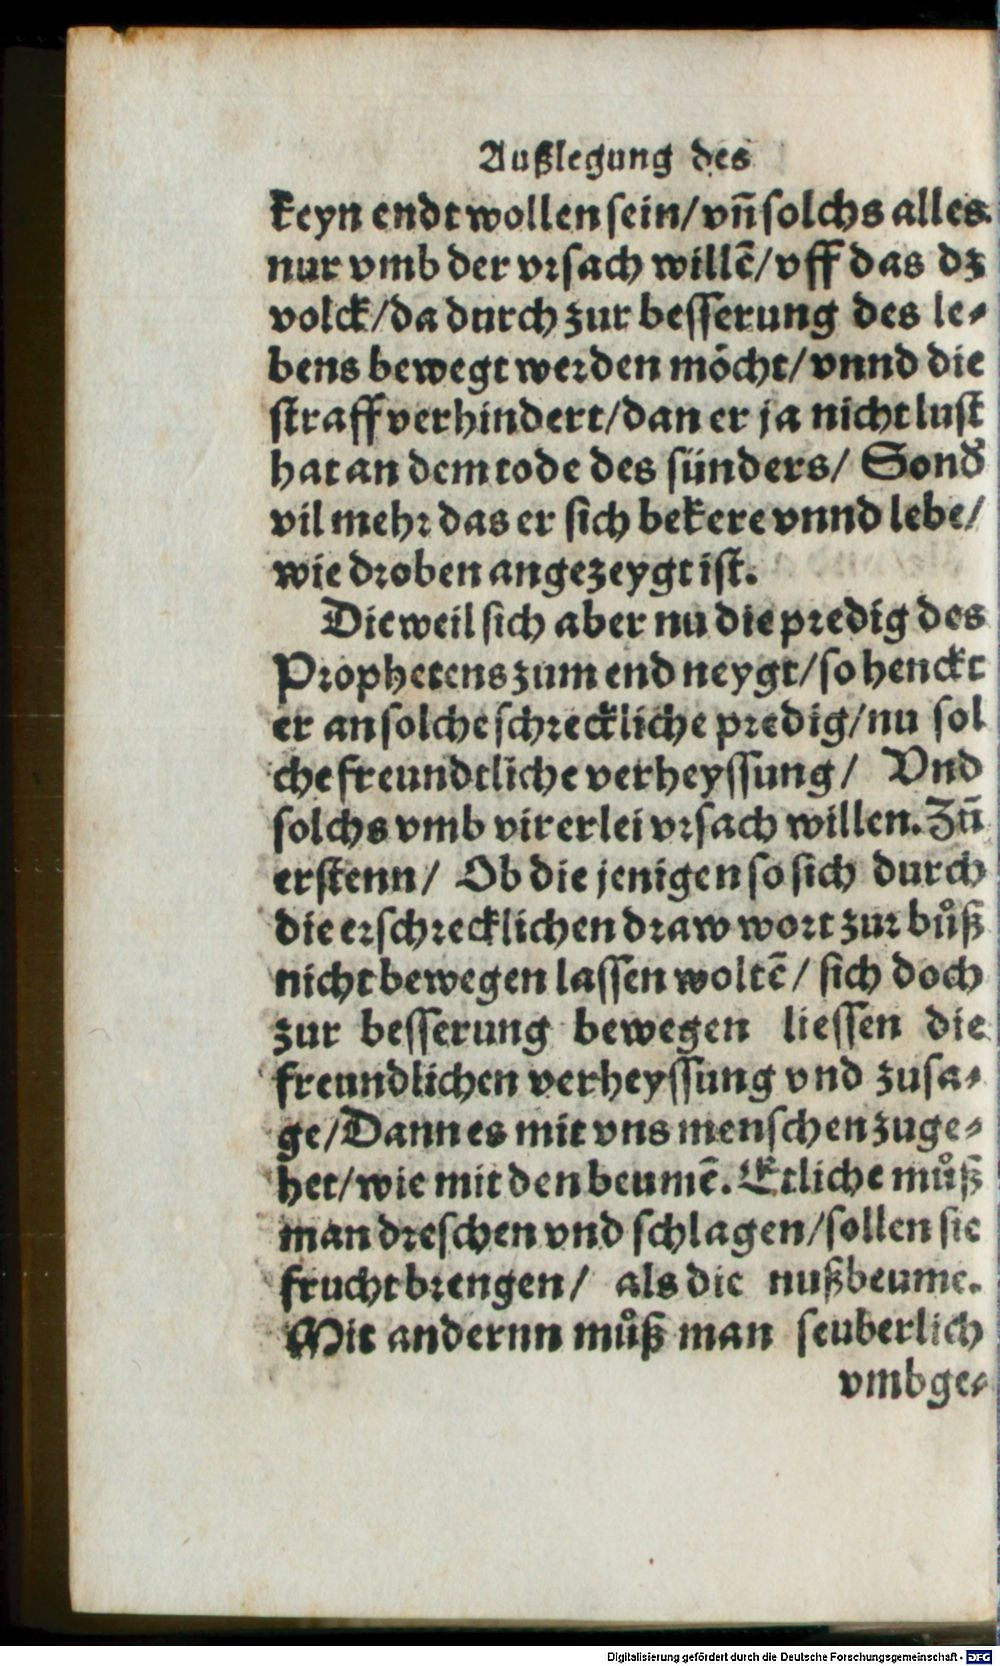 Außlegung des
keyn endt wollen sein/ vn̄ solchs alles
nur vmb der vrsach willē/ vff das dz
volck/ da durch zur besserung des le⸗
bens bewegt werden möcht/ vnnd die
straff verhindert/ dan er ja nicht lust
hat an dem tode des sünders/ Sond̓
vil mehr das er sich bekere vnnd lebe/
wie droben angezeygt ist.
Die weil sich aber nu die predig des
Prophetens zum end neygt/ so henckt
er an solche schreckliche predig/ nu sol
che freundtliche verheyssung/ Vnd
solchs vmb virerlei vrsach willen. Zū
erstenn/ Ob die jenigen so sich durch
die erschrecklichen draw wort zur bůß
nicht bewegen lassen woltē/ sich doch
zur besserung bewegen liessen die
freundlichen verheyssung vnd zusa⸗
ge/ Dann es mit vns menschen zuge⸗
het/ wie mit den beumē. Etliche můß
man dreschen vnd schlagen/ sollen sie
frucht brengen/ als die nußbeume.
Mit andernn můß man seuberlich
vmbge⸗
Digitalisierung gefördert durch die Deutsche Forschungsgemeinschaft - DFG